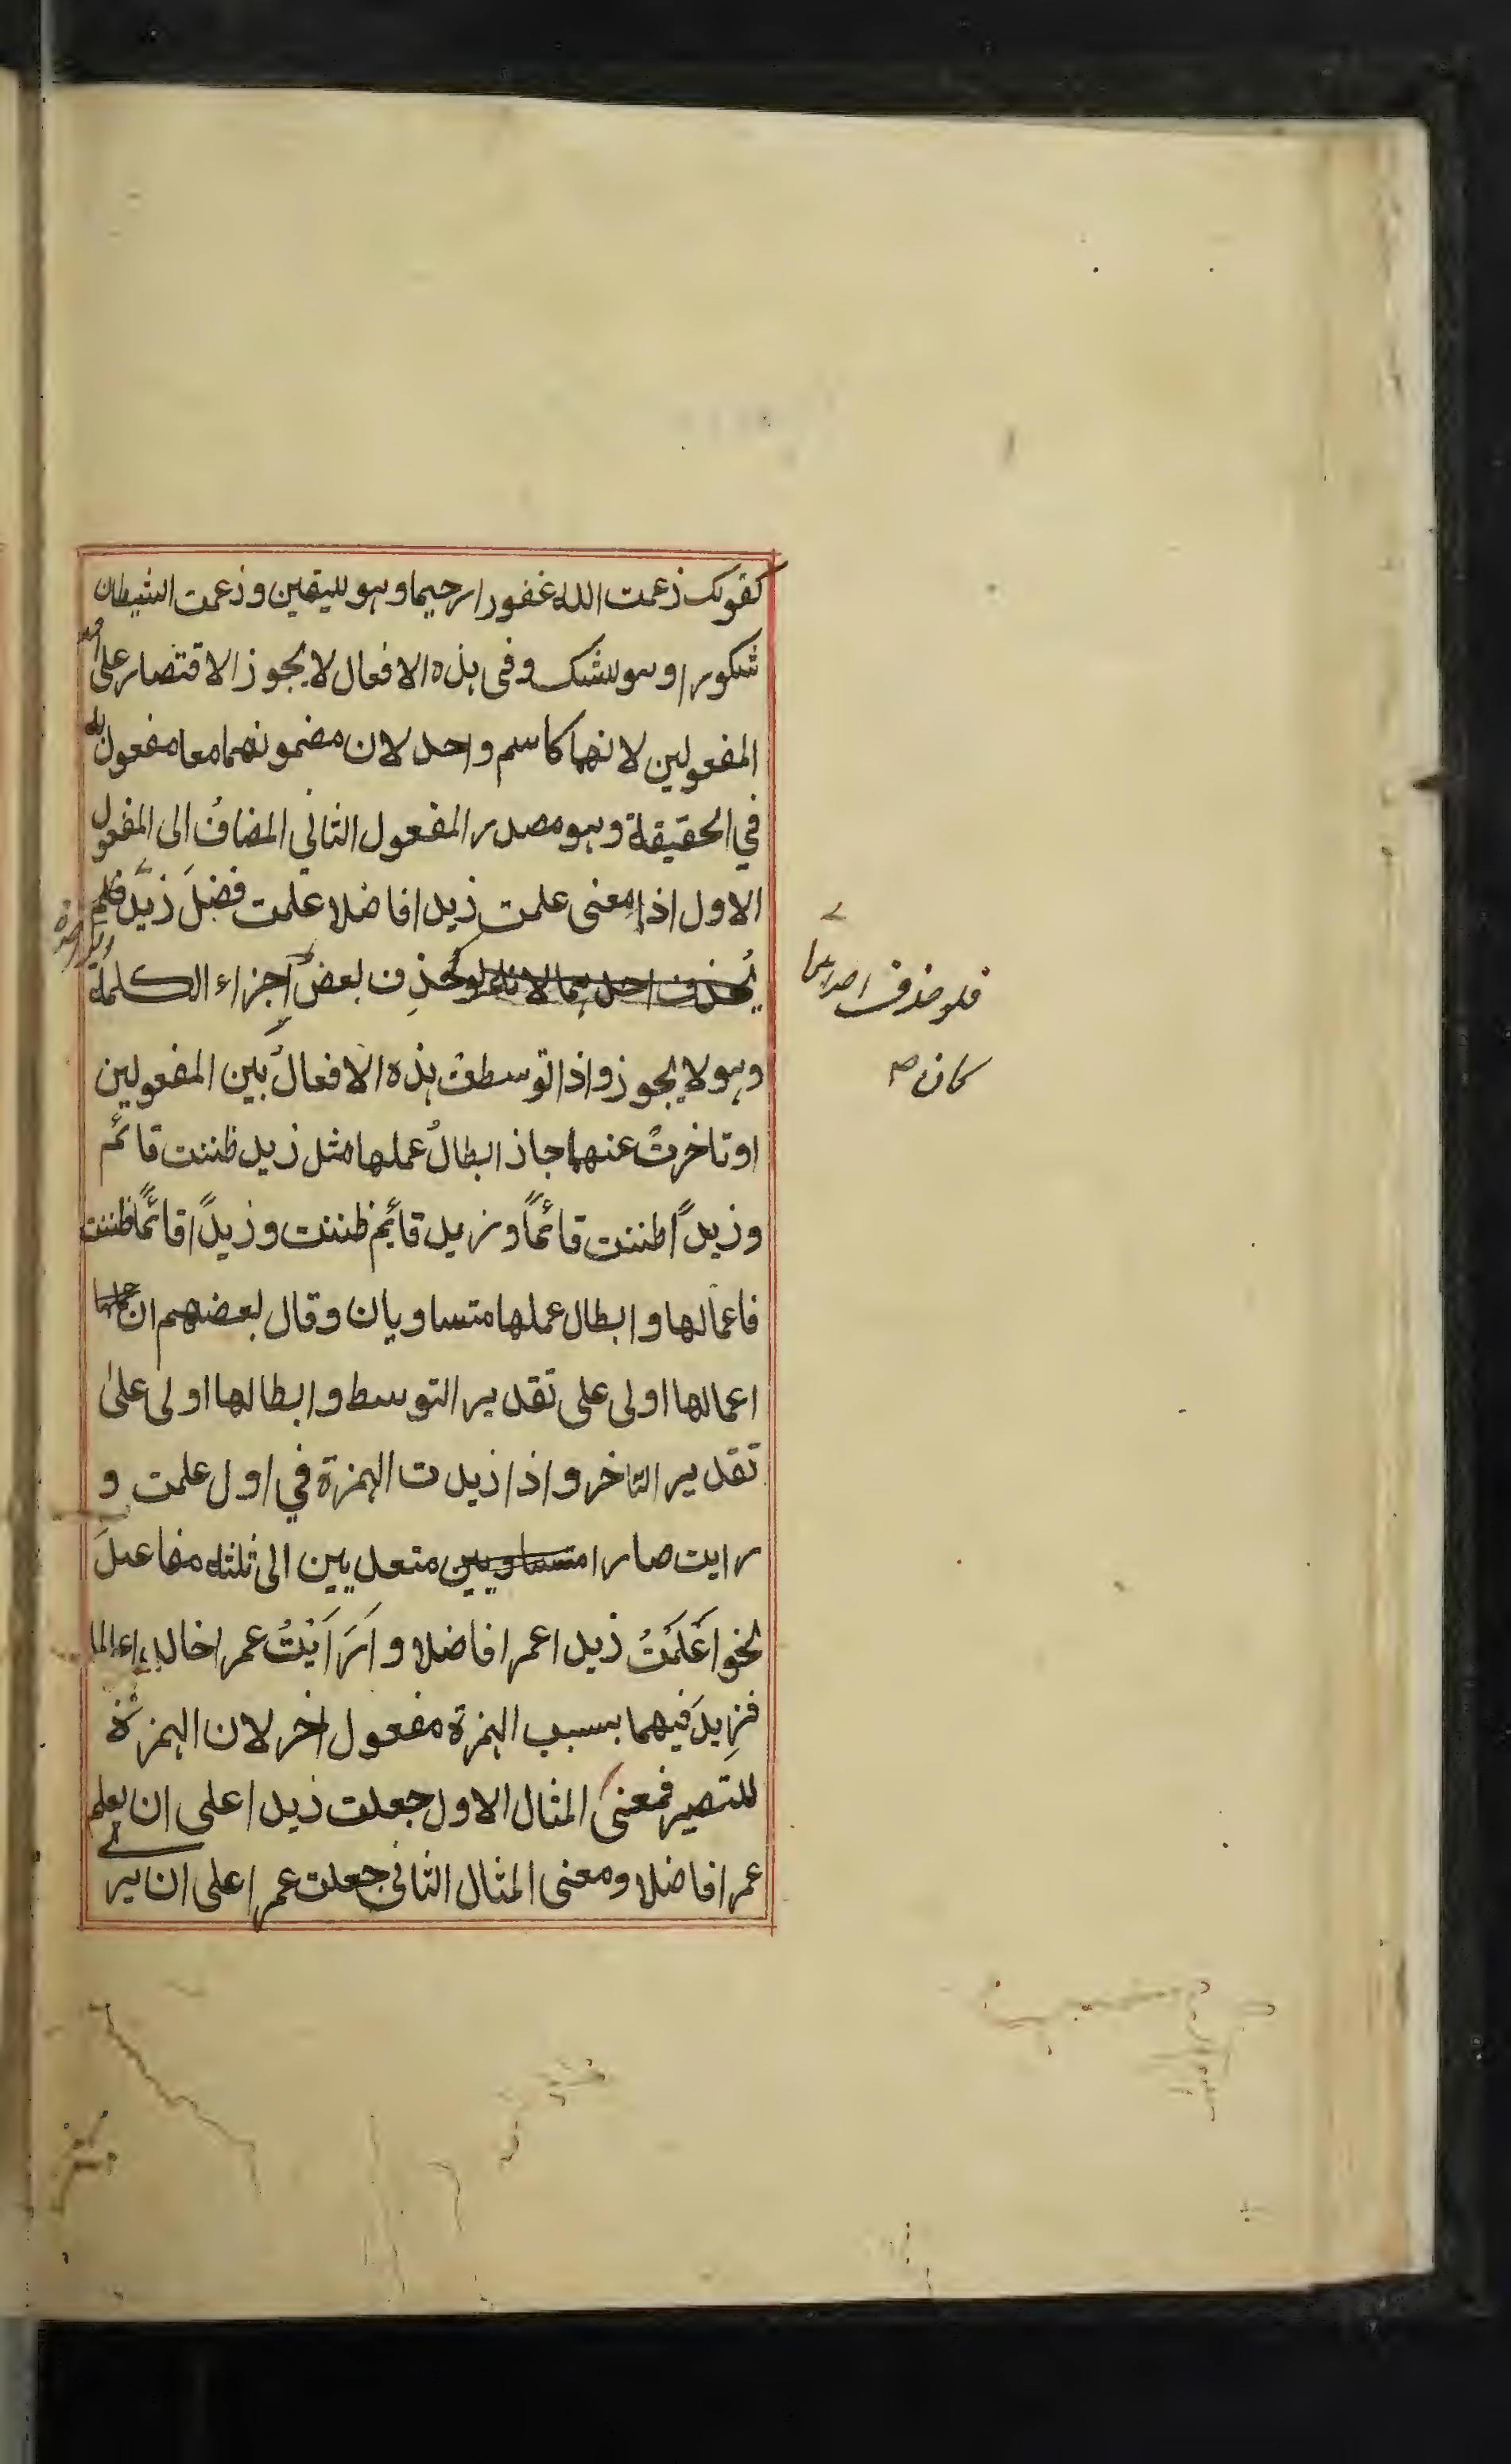 كقولك زعمت الله غفورا رحيما وهو لليقين وزعمت الشيطان
شكورا وهو للشك وفي هذه الافعال لا يجوز الاقتصار على احد
المفعولين لانهما كاسم واحد لان مضمونهما معا مفعول به
في الحقيقة وهو مصدر المفعول الثاني المضافُ الى المفعول
الاول اذ معنى علمت زيدا فاضلا علمت فضلَ زيد
يحذف احدهما لانه لو حُذِف بعضُ اجزاء الكلمة
وهو لا يجوز واذا توسطت هذه الافعالُ بين المفعولين
او تاخرتْ عنهما جاز ابطالُ عملها مثل زيد ظننت قائم
وزيداً ظننت قائماً وزيد قائم ظننت وزيداً قائماً ظننت
فاعمالها وابطال عملها متساويان وقال بعضهم ان
اعمالها اولى على تقدير التوسط وابطالها اولى على
تقدير التاخر واذا زيدت الهمزة في اول علمت و
رايت صارا متساويين متعديين الى ثلثه مفاعيلَ
نحو اَعْلَمْتُ زيدا عمرا فاضلا و اَرَاَيْتُ عمرا خالدا عالما
فزِيدَ فيهما بسبب الهمزة مفعول اخر لان الهمزة
للتصير فمعنى المثال الاول جعلت زيدا على ان يعلم
عمرا فاضلا ومعنى المثال الثاني جعلت عمرا على ان ير
فلو حذف احديهما
كان صح